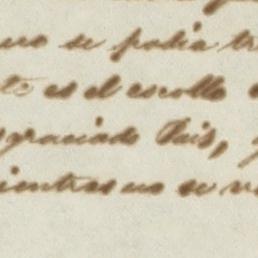 no se podia
es el escollo
graciado Pais,
ientras no se